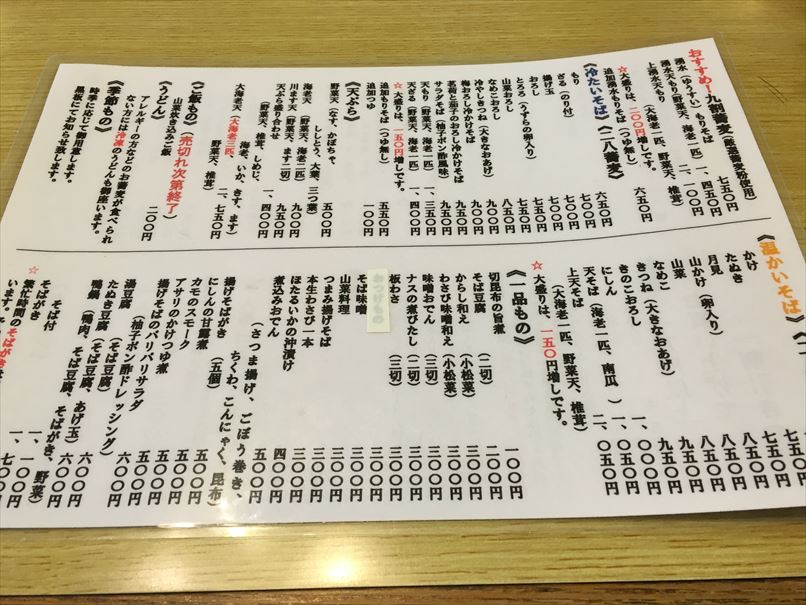 おすすめ！九割蕎麦（厳選蕎麦粉使用）
湧水（ゆうすい）もりそば 七五〇円
湧水天もり（野菜天、海老一匹） 一、四五〇円
上湧水天もり 二、一〇〇円
（大海老一匹、野菜天、椎茸）
☆大盛りは、二〇〇円増しです。
追加湧水もりそば（つゆ無し） 六五〇円
《冷たいそば》（二八蕎麦）
もり 六五〇円
ざる（のり付） 七〇〇円
揚げ玉 七〇〇円
おろし 七〇〇円
とろろ（うずらの卵入り） 七五〇円
山菜おろし 八五〇円
なめこおろし 九〇〇円
冷やしきつね（大きなおあげ） 九〇〇円
梅おろし冷かけそば 九〇〇円
茗荷と茄子のおろし冷かけそば 九〇〇円
サラダそば（柚子ポン酢風味） 九五〇円
天もり（野菜天、海老一匹） 一、三五〇円
天ざる（野菜天、海老一匹） 一、四〇〇円
☆大盛りは、一五〇円増しです。
追加もりそば（つゆ無し） 五五〇円
追加つゆ 一〇〇円
《天ぷら》
野菜天（なす、かぼちゃ、
ししとう、大葉、三つ葉） 七五〇円
海老天（野菜天、海老一匹） 九五〇円
川ます天（野菜天、ます二切） 九五〇円
天ぷら盛り合わせ 一、四〇〇円
（野菜天、椎茸、しめじ、
海老、いか、きす、ます）
大海老天（大海老三匹、 二、七五〇円
野菜天、椎茸）
《ご飯もの》（売切れ次第終了）
山菜炊き込みご飯 二〇〇円
《うどん》
アレルギーの方などのお蕎麦が食べられ
ない方には冷凍のうどんも御座います。
《季節もの》
時季に応じて御用意します。
黒板にてお知らせ致します。
《温かいそば》
かけ
たぬき 七五〇円
月見 七五〇円
山かけ（卵入り） 八五〇円
山菜 八五〇円
なめこ 八五〇円
きつね（大きなおあげ） 九五〇円
きのこおろし 九五〇円
にしん 一、一〇〇円
天そば（海老一匹、南瓜） 一、三五〇円
上天そば 二、〇五〇円
（大海老一匹、野菜天、椎茸）
☆大盛りは、一五〇円増しです。
《一品もの》
切昆布の旨煮 一〇〇円
そば豆腐（二切） 二〇〇円
からし和え（小松菜） 二〇〇円
わさび味噌和え（小松菜） 二〇〇円
味噌おでん（三切） 二〇〇円
ナスの煮びたし（二切） 二〇〇円
板わさ（三切） 三〇〇円
そば味噌 三〇〇円
山菜料理 三〇〇円
つまみ揚げそば 三〇〇円
本生わさび一本 三〇〇円
ほたるいかの沖漬け 四〇〇円
煮込みおでん 五〇〇円
（さつま揚げ、ごぼう巻き、
ちくわ、こんにゃく、昆布）
揚げそばがき（五個） 五〇〇円
にしんの甘露煮 五〇〇円
カモのスモーク 五〇〇円
アサリのかけつゆ煮 五〇〇円
揚げそばのパリパリサラダ 六〇〇円
（柚子ポン酢ドレッシング）
湯豆腐（そば豆腐） 六〇〇円
たぬき豆腐（そば豆腐、あげ玉） 六〇〇円
鴨鍋（鴨肉、そば豆腐、そばがき、野菜） 一、一〇〇円
そば付 一、七〇〇円
そばがき
☆繁忙時間のそばがきは
います。